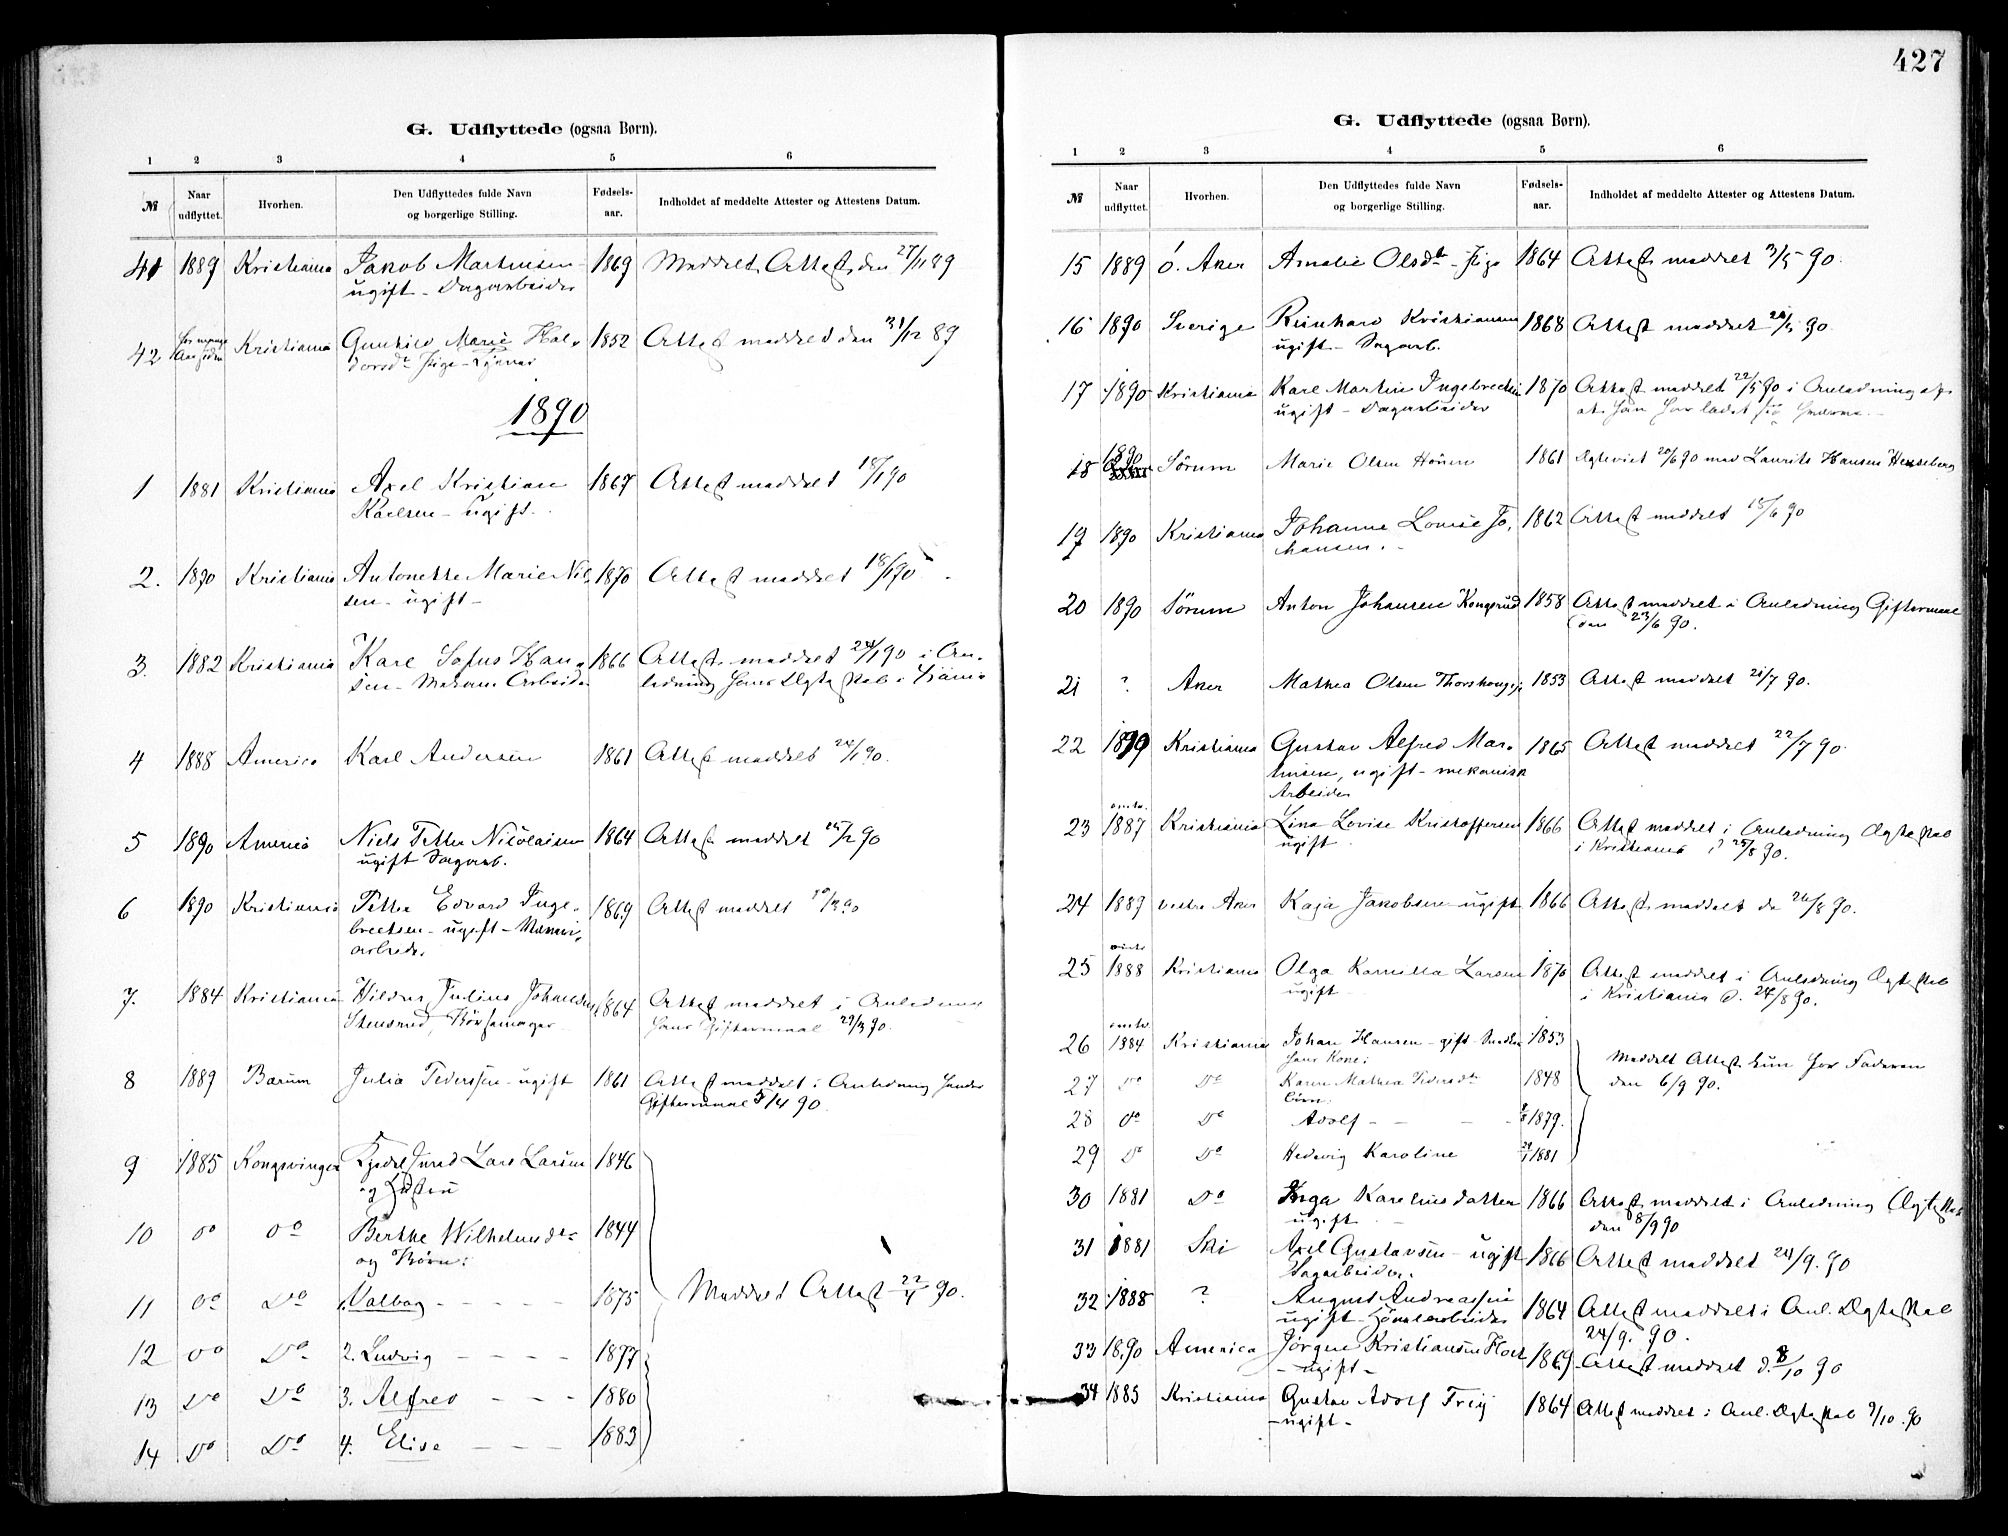 427
G. Udflyttede (ogsaa Børn).
1 2 3 4 5 6
№ Naar udflyttet. Hvorhen. Den Udflyttedes fulde Navn og borgerlige Stilling. Fødsels-aar. Indholdet af meddelte Attester og Attestens Datum.
41 1889 Kristiania Jakob Martinsen 1869 Meddelt Attest den 27/11 89
ugift - Dagarbeider
42 for mange Aar siden Kristiania Gunhild Marie Hal- 1852 Attest meddelt den 31/12 89
vorsdt Pige - Tjener
1890
1 1881 Kristiania Axel Kristian 1867 Attest meddelt 18/1 90
Karlsen - ugift.
2. 1890 Kristiania Antonette Marie Nil 1870 Attest meddelt 18/1 90
sen - ugift -
3. 1882 Kristiania Karl Sofus Han 1866 Attest meddelt 24/1 90 i An-
sen - Mekan. Arbeider ledning hans Ægteskab i Kr.ania
4 1888 America Karl Andersen 1861 Attest meddelt 24/1 90.
5 1890 America Niels Petter Nicolaisen 1864 Attest meddelt 25/2 90
ugift Sagarb.
6 1890 Kristiania Petter Edvard Inge- 1869 Attest meddelt 10/3 90
brectsen - ugift -
arbeider
7. 1884 Kristiania Hildus Julius Johansen 1864 Attest meddelt i Anledning
Stensrud, Børsemager hans Giftermaal 29/3 90.
8 1889 Bærum Julia Pederssen - ugift 1861 Attest meddelt i Anledning hendes
Giftermaal 5/4 90.
9 1885 Kongsvinger Lars Larsen 1846
og Hustru
10 do do Berthe Wilhelmsdt 1844
og Børn:
11 do Do 1. Valborg - - - - 1875 Meddelt Attest 22/4 90.
12 do Do 2. Ludvig - - - - 1877
13 Do Do 3. Alfred - - - 1880
14 Do Do 4. Elise - - - 1883
G. Udflyttede (ogsaa Børn).
1 2 3 4 5 6
№ Naar udflyttet. Hvorhen. Den Udflyttedes fulde Navn og borgerlige Stilling. Fødsels-aar. Indholdet af meddelte Attester og Attestens Datum.
15 1889 Ö. Aker Amalie Olsdt - Pige 1864 Attest meddelt 3/5 90.
16 1890 Sverige Reinhard Kristiansen 1868 Attest meddelt 20/5 90.
ugift - Sagarb.
17 1890 Kristiania Karl Martin Ingebrectsen 1870 Attest meddelt 22/5 90 i Anledning af
ugift - Dagarbeider at han har ladet sig
18 1890 Sörum Marie Olsen Hönen 1861 Ægteviet 20/6 90 med Laurits Hansen Hexeberg
19 1890 Kristiania Johanne Louise Jo- 1862 Attest meddelt 18/6 90
hansen. -
20 1890 Sörum Anton Johansen Kongerud 1858 Attest meddelt i Anledning Giftermaal
den 23/6 90.
21 ? Aker Mathea Olsen Thorshaug 1853 Attest meddelt 21/7 90.
22 1890 Kristiania Gustav Alfred Mar- 1865 Attest meddelt 22/7 90.
tinsen, ugift - mekanisk
Arbeider
23 omtr. 1887 Kristiania Lina Lovise Kristoffersen 1866 Attest meddelt i Anledning Ægteskab
ugift i Kristiania d 25/8 90.
24 1889 vestre Aker Kaja Jakobsen - ugift 1866 Attest meddelt d. 26/8 90.
25 omtr. 1888 Kristiania Olga Kamilla Larsen 1870 Attest meddelt i Anledning Ægteskab
ugift i Kristiania d. 24/8 90.
26 omtr. 1884 Kristiania Johan Hansen - gift - Snedker 1853
hans Kone: Meddelt Attest kun for Faderen
27 Do Do Karen Mathea Pedersdt 1848 den 6/9 90.
Börn:
28 do Do Adolf - - - 1879.
29 Do Do Hedevig Karoline 1881
30 1881 Do Inga Kareliusdatter 1866 Attest meddelt i Anledning Ægteskab
ugift den 8/9 90
31 1881 Ski Axel Gustavsen - ugift 1866 Attest meddelt 24/9. 90
Sagarbeider.
32 1888 ? August Andreassen 1864 Attest meddelt i Anl. Ægteskab
ugift - 24/9. 90.
33 1890 America Jörgen Kristiansen 1869 Attest meddelt d. 8/10 90
- ugift -
34 1885 Kristiania Gustav Adolf Frij 1864 Attest meddelt i Anl. Ægteskab 9/10. 90
- ugift -